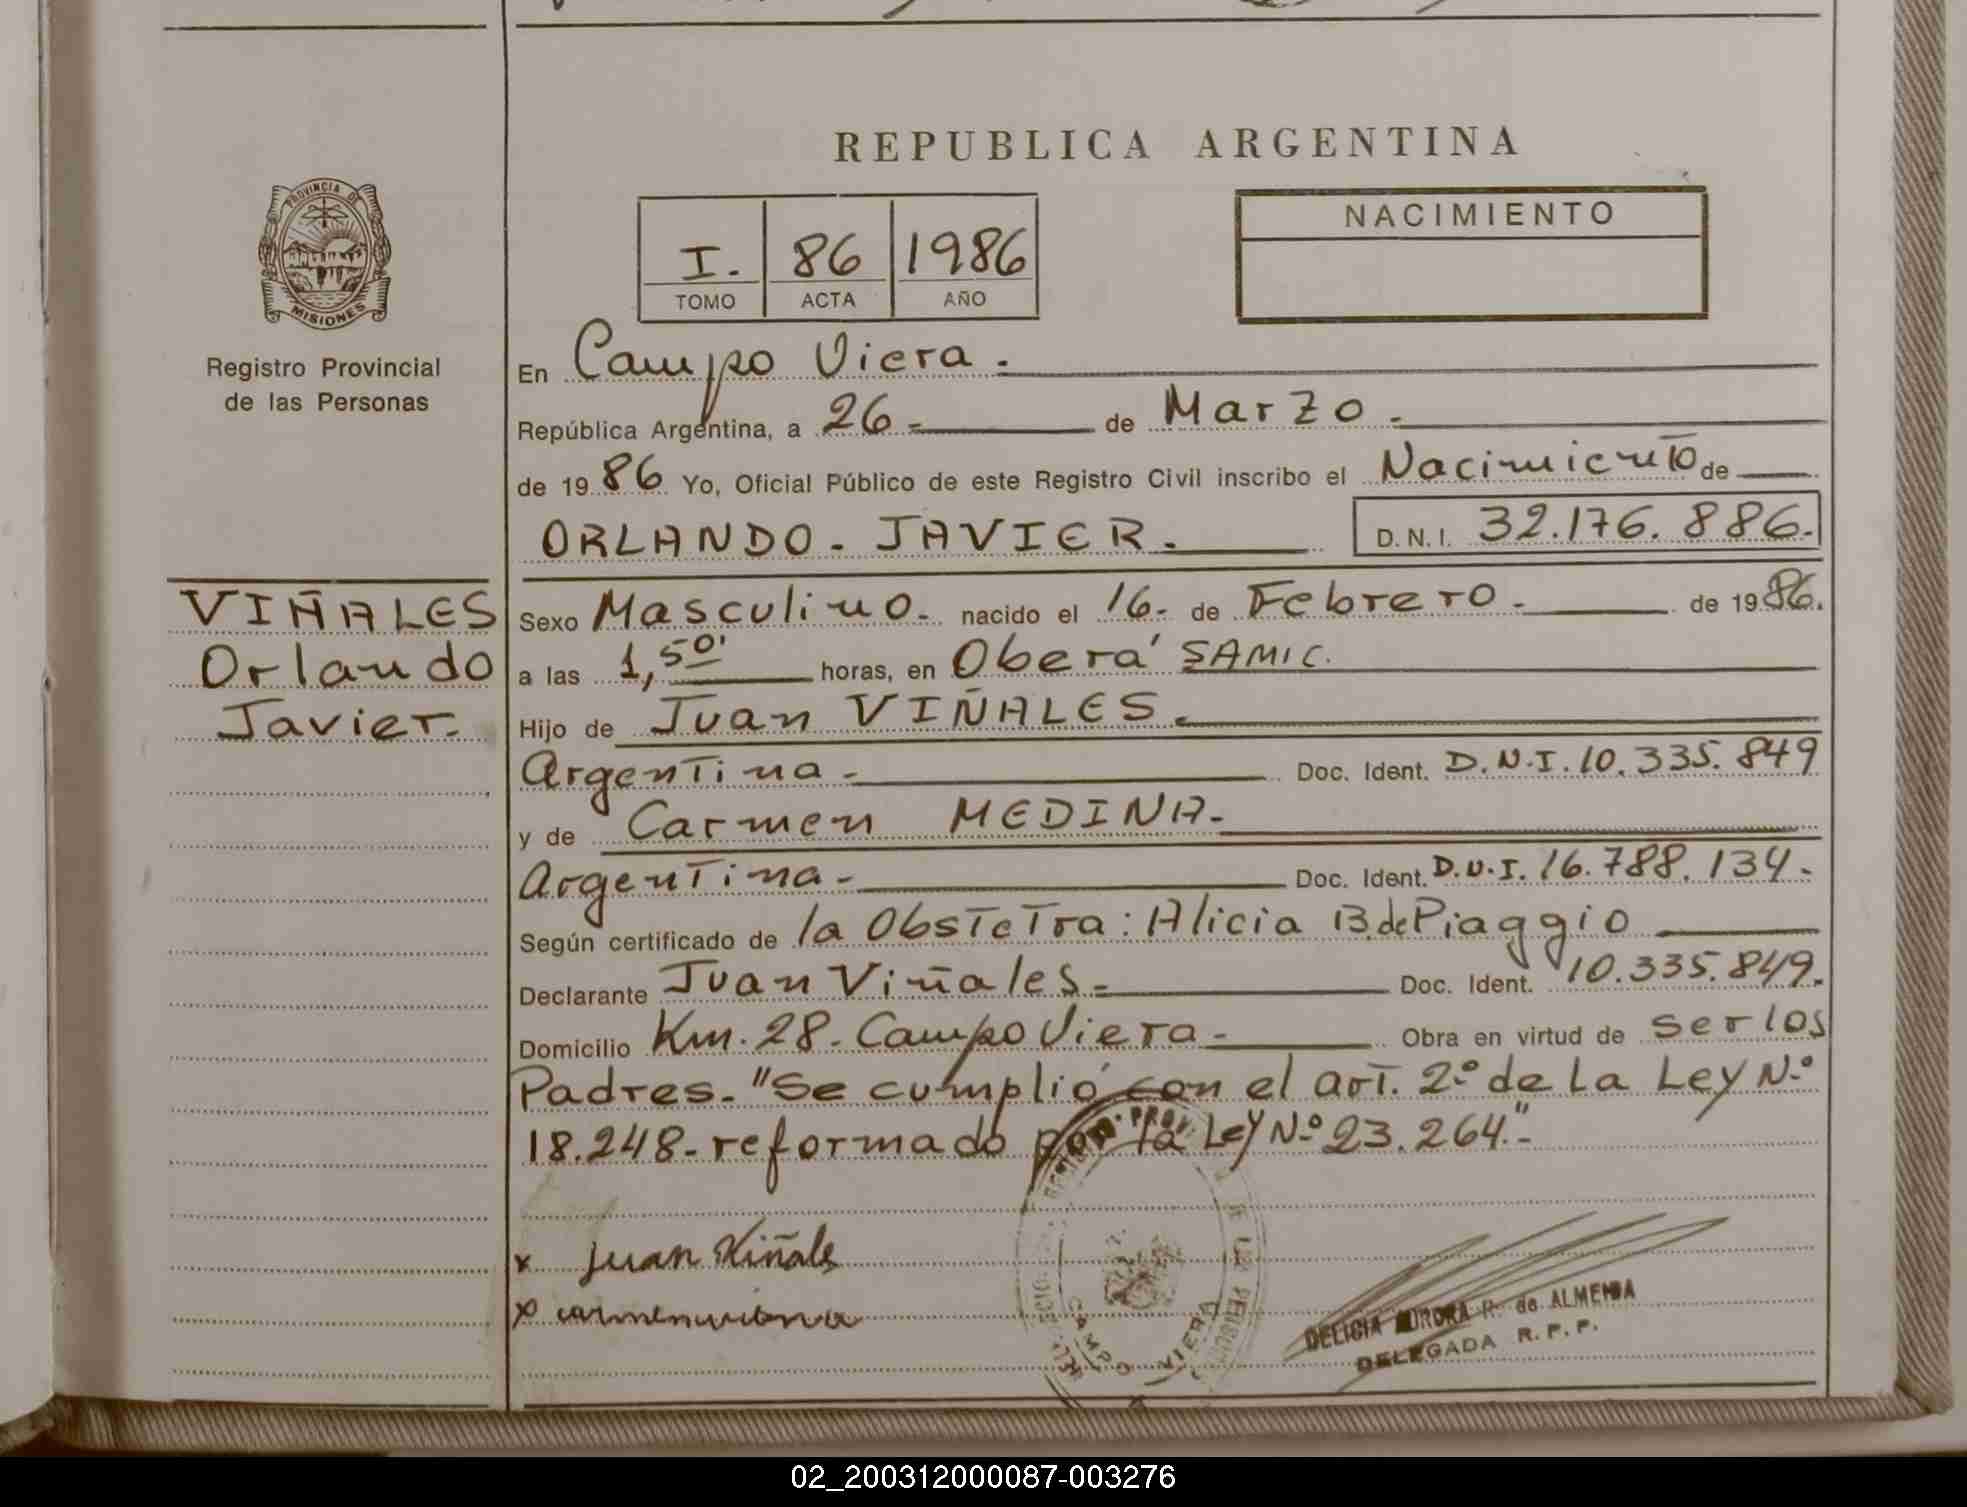 REPUBLICA ARGENTINA
PROVINCIA DE
MISIONES
Registro Provincial
de las Personas
I. 86 1986
TOMO ACTA AÑO
NACIMIENTO
En Campo Viera.
República Argentina, a 26 de Marzo.
de 1986 Yo, Oficial Público de este Registro Civil inscribo el Nacimiento de
ORLANDO. JAVIER. D.N.I. 32.176.886.
VIÑALES
Orlando
Javier.
Sexo Masculino. nacido el 16. de Febrero. de 1986.
a las 1,50' horas, en Oberá SAMIC.
Hijo de Juan VIÑALES.
Argentina. Doc. Ident. D.N.I. 10.335.849
y de Carmen MEDINA.
Argentina. Doc. Ident. D.N.I. 16.788.134.
Según certificado de la Obstetra: Alicia B. de Piaggio
Declarante Juan Viñales. Doc. Ident. 10.335.849.
Domicilio Km. 28. Campo Viera. Obra en virtud de ser los
Padres. "Se cumplió con el art. 2º de La Ley Nº
18.248. reformado por la Ley Nº 23.264".
x Juan Viñales
x
CAMPO VIERA
DELICIA AURORA R. de ALMEIDA
DELEGADA R. P. P.
02_200312000087-003276